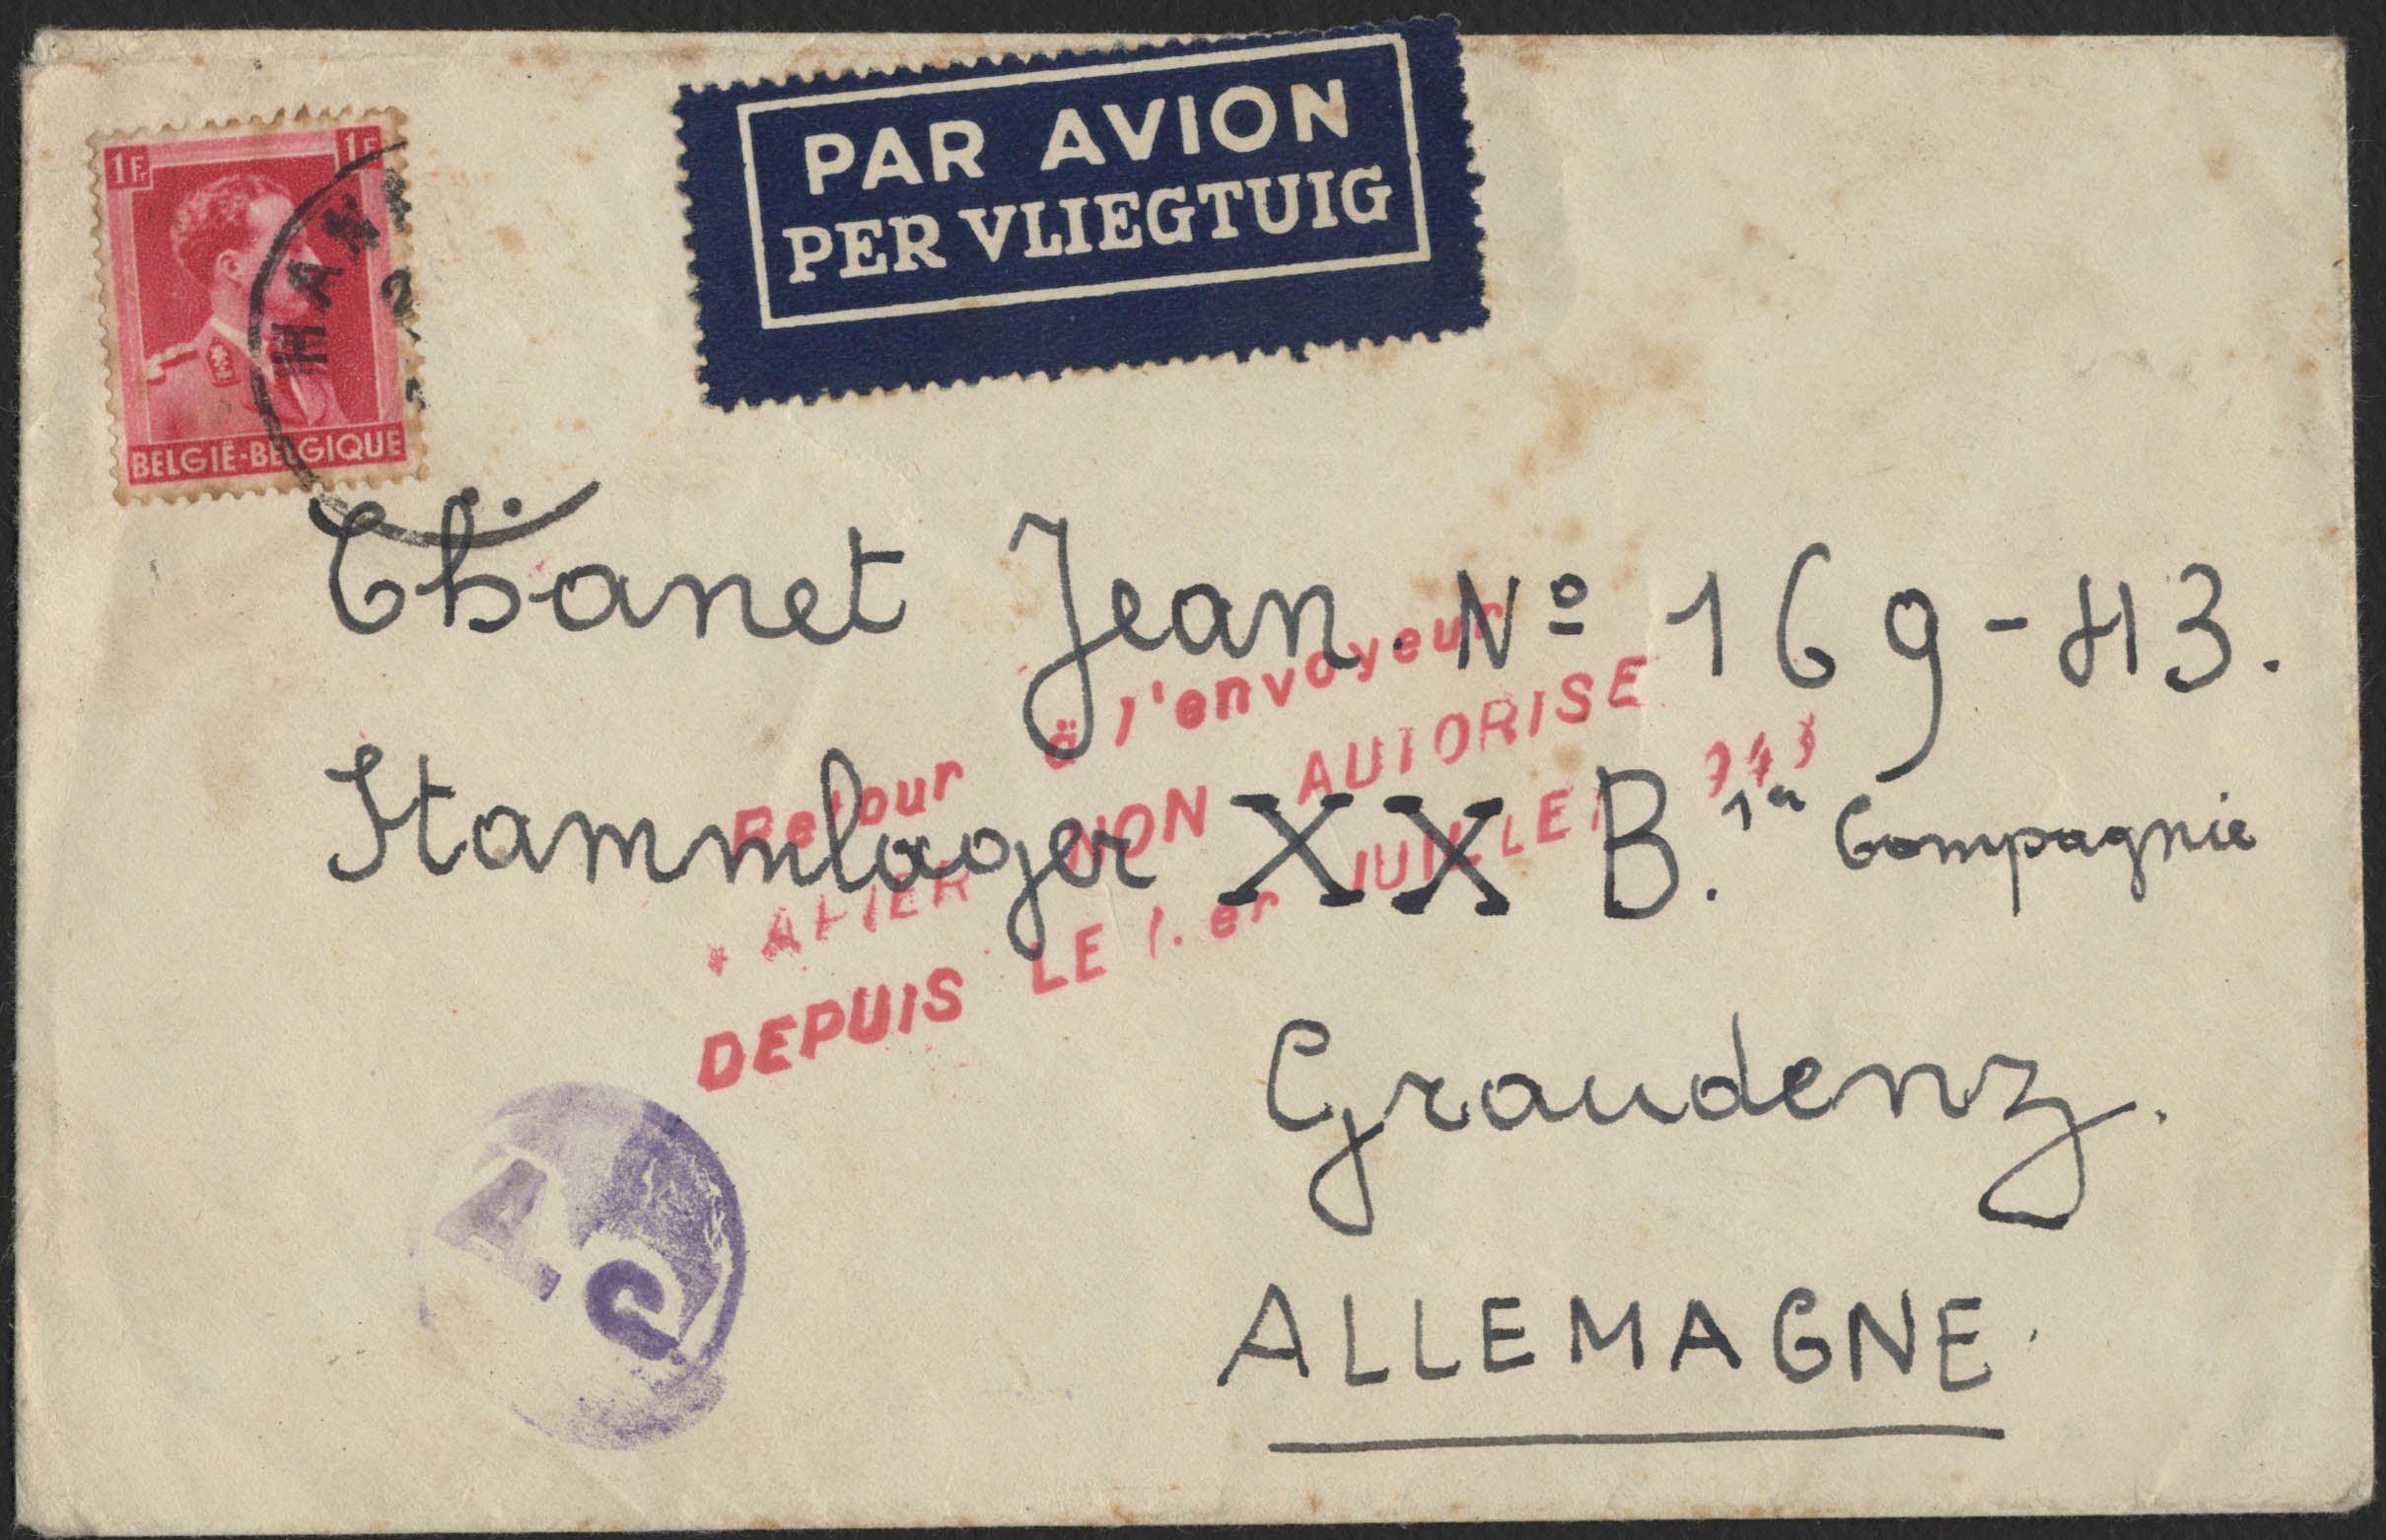 1Fr 1Fr
BELGIË-BELGIQUE
PAR AVION
PER VLIEGTUIG
Thanet Jean. Nº 169-43.
Stammlager XX B. 1re Compagnie
Graudenz.
ALLEMAGNE.
Retour à l'envoyeur
NON AUTORISE
DEPUIS LE 1.er JUILLET
A C